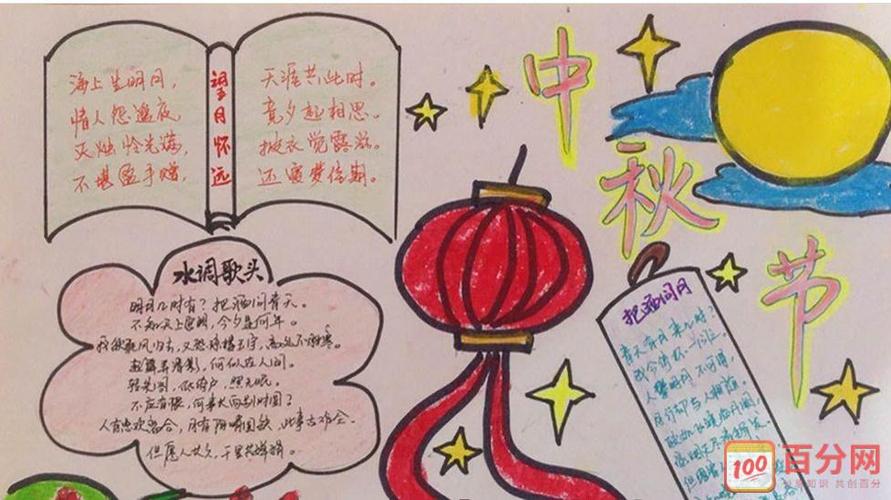 中秋节
望月怀远
海上生明月，
情人怨遥夜，
灭烛怜光满，
不堪盈手赠，
天涯共此时。
竟夕起相思。
披衣觉露滋。
还寝梦佳期。
水调歌头
明月几时有？把酒问青天。
不知天上宫阙，今夕是何年。
我欲乘风归去，又恐琼楼玉宇，高处不胜寒。
起舞弄清影，何似在人间。
转朱阁，低绮户，照无眠。
不应有恨，何事长向别时圆？
人有悲欢离合，月有阴晴圆缺，此事古难全。
但愿人长久，千里共婵娟。
把酒问月
青天有月来几时？
我今停杯一问之。
人攀明月不可得，
月行却与人相随。
皎如飞镜临丹阙，
绿烟灭尽清辉发。
100
百分网
共创百分